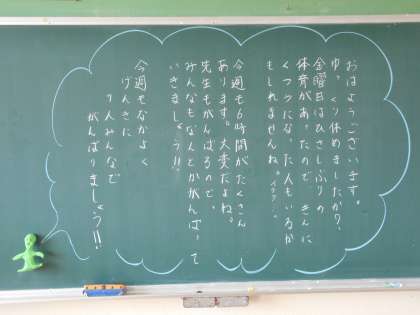 おはようございます。
ゆっくり休めましたか？
金曜日はひさしぶりの
体育があったので、きんに
くつうになった人もいるか
もしれませんね。イタタ…。
今週も6時間がたくさん
あります。大変だよね。
先生もがんばるので、
みんなもなんとかがんばって
いきましょう!!
今週もなかよく
げんきに
7人みんなで
がんばりましょう!!